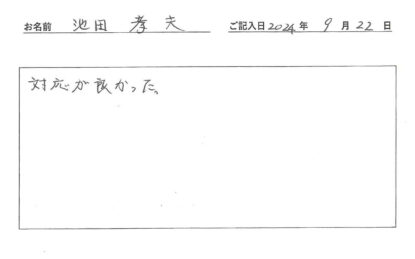 お名前 池田 孝夫 ご記入日2024年 9月22日
対応が良かった。